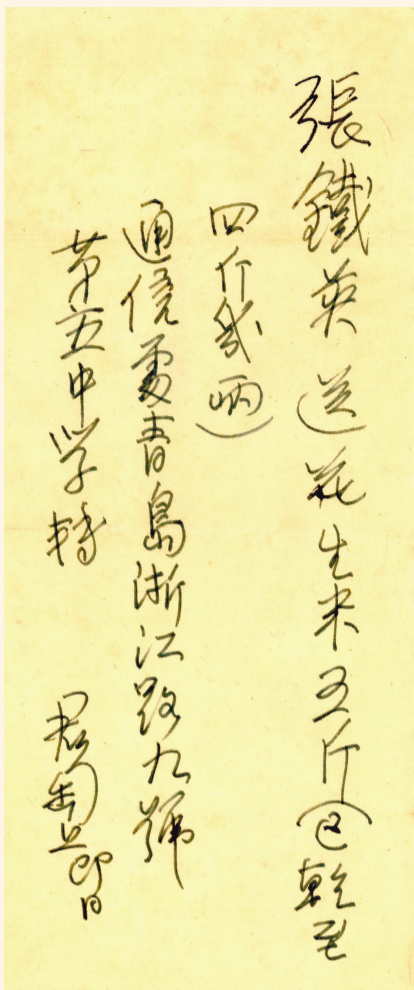 張鐵英送花生米五斤(已乾至
四斤幾啊)
通信處青島浙江路九號
第五中學轉
君匋上 即日